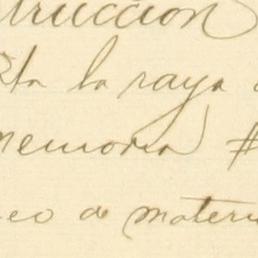 trucción
sta la raya
memoria #
eo de materi